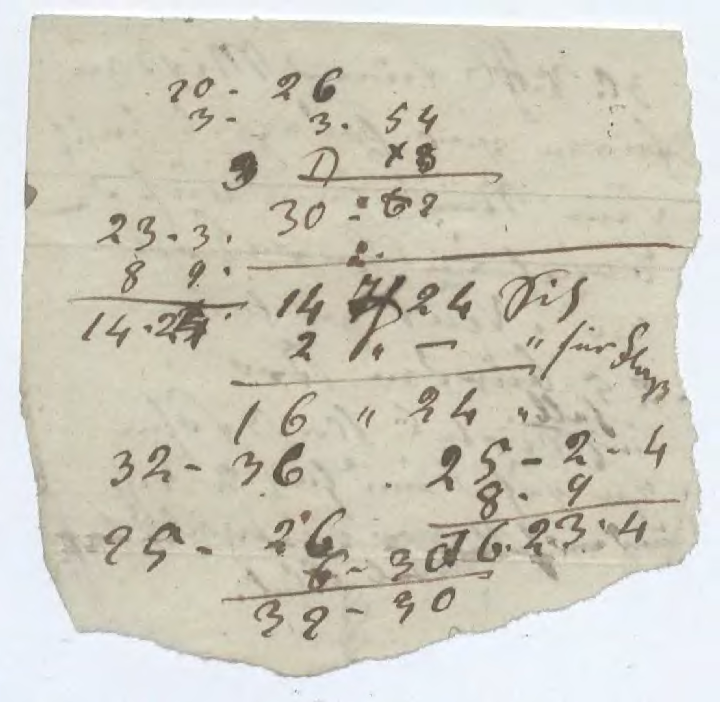 20 - 26
3 - 3 . 54
30 : 62
23 . 3 .
8 9 .
14 . 24
14 24
2 " — " für
16 " 24 "
32 - 36
25 - 2 - 4
8 . 9
16 . 23 . 4
25 - 26
6 - 30
32 - 30